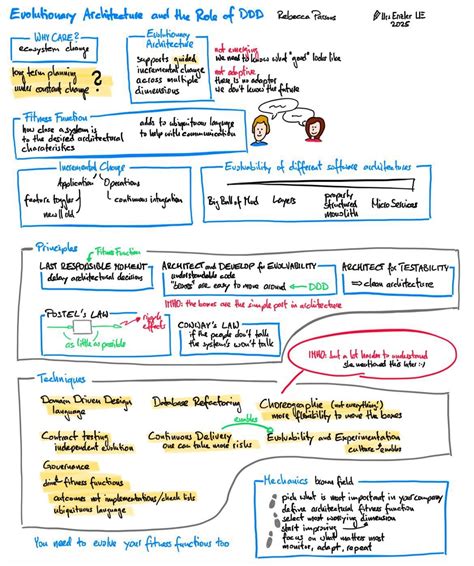 Evolutionary Architecture and the Role of DDD
Rebecca Parsons
Urs Enzler LE
2025
WHY CARE?
ecosystem change
long term planning
under constant change?
Evolutionary
Architecture
supports guided
incremental change
across multiple
dimensions
not emerging
we need to know what "good" looks like
not adaptive
there is no adaptor
we don't know the future
Fitness Function
how close a system is
to the desired architectural
charateristics
adds to ubiquitous language
to help with communication
Incremental Change
Application
Operations
feature toggles
continuous integration
Evolvability of different software architectures
Big Ball of Mud
Layers
properly
structured
monolith
Micro Services
Principles
Fitness Function
LAST RESPONSIBLE MOMENT
delay architectural decisions
ARCHITECT and DEVELOP for EVOLVABILITY
understandable code
"boxes" are easy to move around
DDD
IMHO: the boxes are the simple part in architecture
ARCHITECT for TESTABILITY
⇒ clean architecture
POSTEL'S LAW
effects
as little as possible
CONWAY'S LAW
if the people don't talk
the systems won't talk
IMHO: but a lot harder to understand
she mentioned this later :-)
Techniques
Domain Driven Design
language
Database Refactoring
Choreographie (not everything!)
more flexibility to move the boxes
enables
Contract testing
independent evolution
Continuous Delivery
one can take more risks
Evolvability and Experimentation
culture enables
Governance
fitness functions
outcomes not implementations/check lists
ubiquitous language
Mechanics brown field
pick what is most important in your company
define architectural fitness function
select most worrying dimension
start improving
focus on what matters most
monitor, adapt, repeat
You need to evolve your fitness functions too